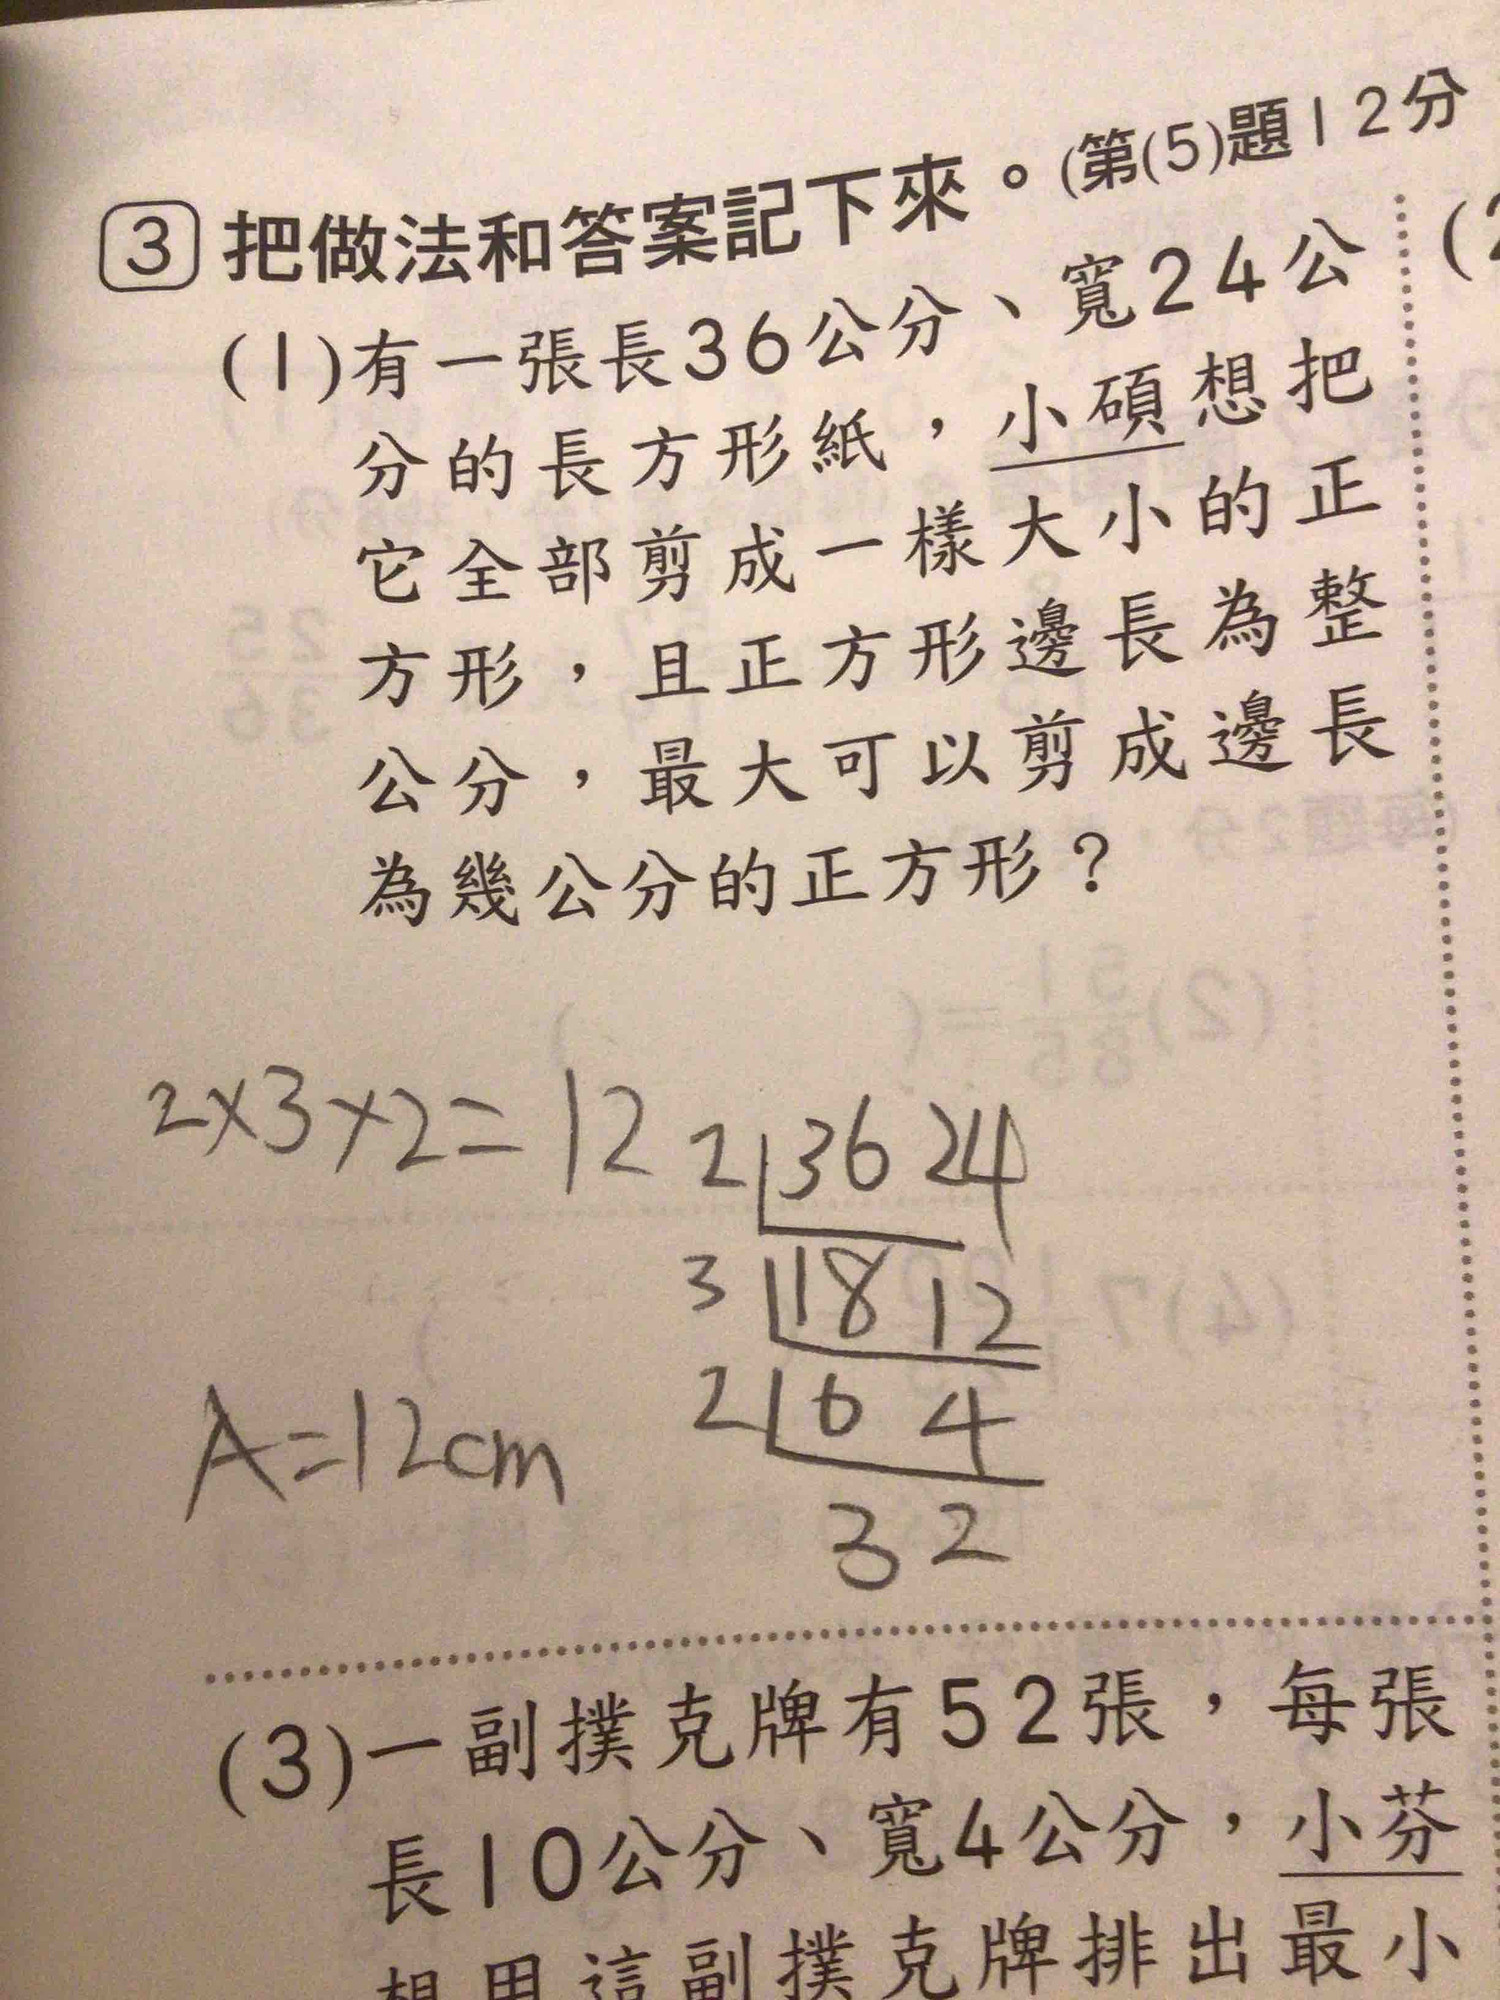 3 把做法和答案記下來。(第(5)題12分
(1)有一張長36公分、寬24公
分的長方形紙，小碩想把
它全部剪成一樣大小的正
方形，且正方形邊長為整
公分，最大可以剪成邊長
為幾公分的正方形？
2×3×2=12
2 36 24
3 18 12
2 6 4
3 2
A=12cm
(3)一副撲克牌有52張，每張
長10公分、寬4公分，小芬
想用這副撲克牌排出最小
(2